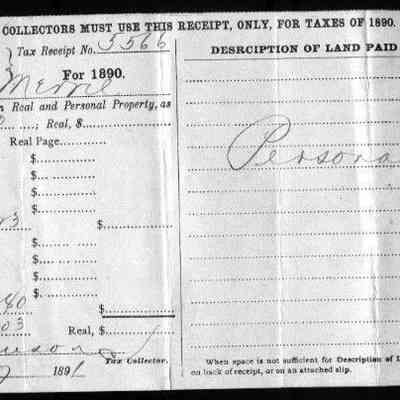 COLLECTORS MUST USE THIS RECEIPT, ONLY, FOR TAXES OF 1890.
Tax Receipt No. 5566
For 1890.
Real and Personal Property, as
; Real, $
Real Page
$
$
$
$
$
$
$
$
40
$
03 Real, $
Tax Collector.
1891
DESRCIPTION OF LAND PAID
Persona
When space is not sufficient for Description of L
on back of receipt, or on an attached slip.